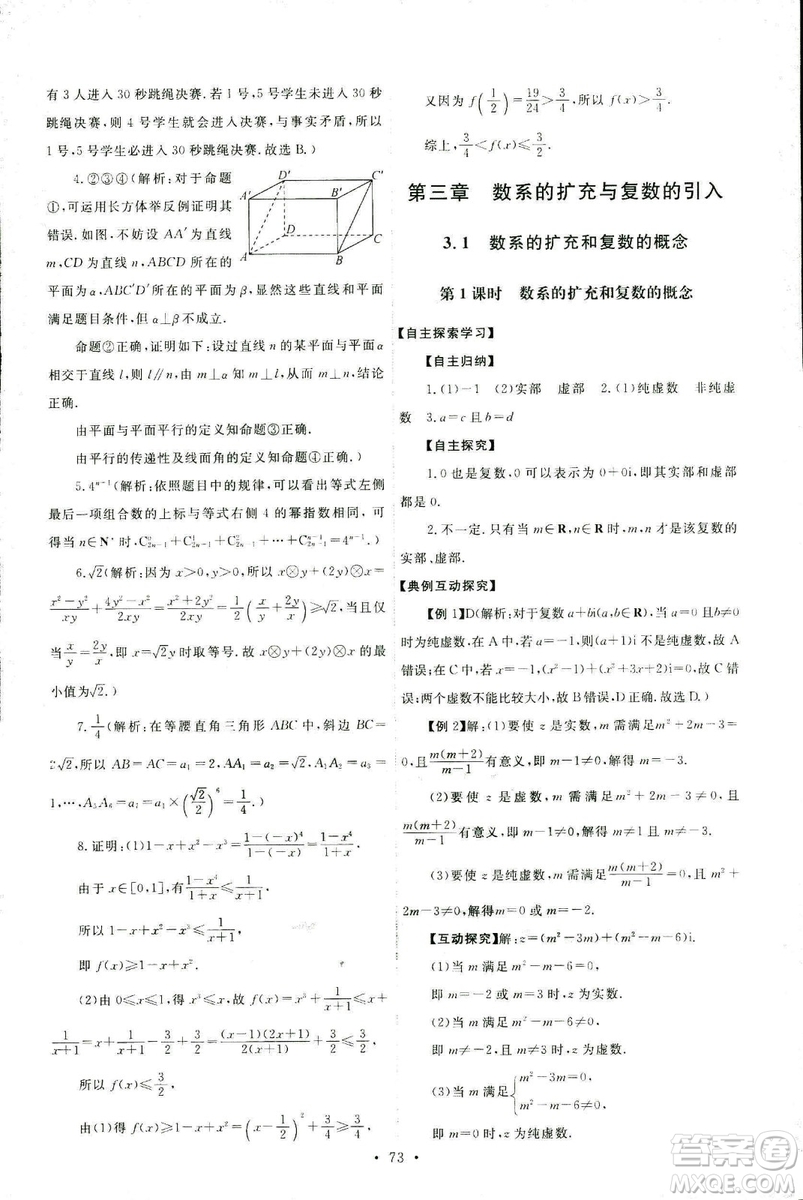 有 3 人进入 30 秒跳绳决赛.若 1 号,5 号学生未进入 30 秒
跳绳决赛,则 4 号学生就会进入决赛,与事实矛盾,所以
1 号,5 号学生必进入 30 秒跳绳决赛.故选 B.)
4.②③④(解析:对于命题
①,可运用长方体举反例证明其
错误.如图,不妨设 AA′为直线
m,CD 为直线 n,ABCD 所在的
平面为 α,ABC′D′所在的平面为 β,显然这些直线和平面
满足题目条件,但 α⊥β 不成立.
D′
C′
A′
B′
D
C
A
B
命题②正确,证明如下:设过直线 n 的某平面与平面 α
相交于直线 l,则 l∥n,由 m⊥α 知 m⊥l,从而 m⊥n,结论
正确.
由平面与平面平行的定义知命题③正确.
由平行的传递性及线面角的定义知命题④正确.)
5.4ⁿ⁻¹(解析:依照题目中的规律,可以看出等式左侧
最后一项组合数的上标与等式右侧 4 的幂指数相同,可
知当 n∈N* 时,C⁰₂ₙ₋₁+C¹₂ₙ₋₁+C²₂ₙ₋₁+⋯+Cⁿ⁻¹₂ₙ₋₁=4ⁿ⁻¹.)
6.√2(解析:因为 x>0,y>0,所以 x⊗y+(2y)⊗x=
(x²-y²)/(xy)+(4y²-x²)/(2xy)=(x²+2y²)/(2xy)=1/2(x/y+2y/x)≥√2,当且仅
当 x/y=2y/x,即 x=√2y 时取等号.故 x⊗y+(2y)⊗x 的最
小值为√2.)
7.1/4(解析:在等腰直角三角形 ABC 中,斜边 BC=
2√2,所以 AB=AC=a₁=2,AA₁=a₂=√2,A₁A₂=a₃=
1,⋯,A₅A₆=a₇=a₁×(√2/2)⁶=1/4.)
8.证明:(1)1-x+x²-x³=(1-(-x)⁴)/(1-(-x))=(1-x⁴)/(1+x).
由于 x∈[0,1],有(1-x⁴)/(1+x)≤1/(x+1),
所以 1-x+x²-x³≤1/(x+1),
即 f(x)≥1-x+x².
(2)由 0≤x≤1,得 x³≤x,故 f(x)=x³+1/(x+1)≤x+
1/(x+1)=x+1/(x+1)-3/2+3/2=((x-1)(2x+1))/(2(x+1))+3/2≤3/2,
所以 f(x)≤3/2,
由(1)得 f(x)≥1-x+x²=(x-1/2)²+3/4≥3/4,
又因为 f(1/2)=19/24>3/4,所以 f(x)>3/4.
综上,3/4<f(x)≤3/2.
第三章 数系的扩充与复数的引入
3.1 数系的扩充和复数的概念
第 1 课时 数系的扩充和复数的概念
【自主探索学习】
【自主归纳】
1.(1)-1 (2)实部 虚部 2.(1)纯虚数 非纯虚
数 3.a=c 且 b=d
【自主探究】
1.0 也是复数,0 可以表示为 0+0i,即其实部和虚部
都是 0.
2.不一定.只有当 m∈R,n∈R 时,m,n 才是该复数的
实部、虚部.
【典例互动探究】
【例 1】D(解析:对于复数 a+bi(a,b∈R),当 a=0 且 b≠0
时为纯虚数,在 A 中,若 a=-1,则(a+1)i 不是纯虚数,故 A
错误;在 C 中,若 x=-1,不是纯虚数,故 C
错误;两个虚数不能比较大小,故 B 错误,D 正确.故选 D.)
【例 2】解:(1)要使 z 是实数,m 需满足 m²+2m-3=
0,且(m(m+2))/(m-1)有意义,即 m-1≠0,解得 m=-3.
(2)要使 z 是虚数,m 需满足 m²+2m-3≠0,且
(m(m+2))/(m-1)有意义,即 m-1≠0,解得 m≠1 且 m≠-3.
(3)要使 z 是纯虚数,m 需满足(m(m+2))/(m-1)=0,且 m²
+2m-3≠0,解得 m=0 或 m=-2.
【互动探究】解:z=(m²-3m)+(m²-m-6)i.
(1)当 m 满足 m²-m-6=0,
即 m=-2 或 m=3 时,z 为实数.
(2)当 m 满足 m²-m-6≠0,
即 m≠-2 且 m≠3 时,z 为虚数.
(3)当 m 满足{m²-3m=0,
m²-m-6≠0,
即 m=0 时,z 为纯虚数.
· 73 ·